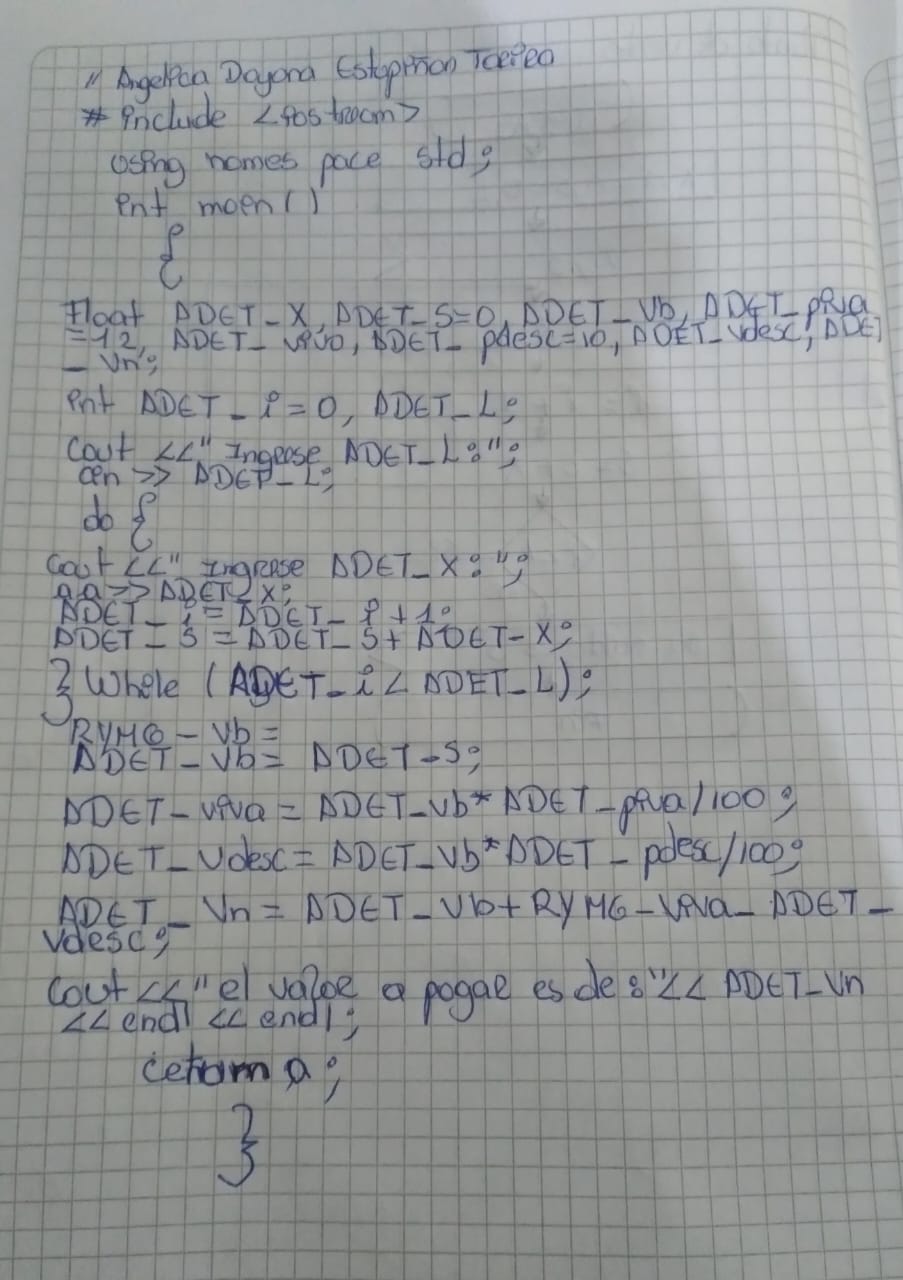 // Angelica Dayana Estopiñan Tarifa
# include <iostream>
using namespace std;
int main()
{
Float ADET_X, ADET_S=0, ADET_Vb, ADET_piva
=12, ADET_ viva, ADET_ pdesc=10, ADET_vdesc, ADET
_ Vn;
int ADET_i=0, ADET_L;
Cout <<" Ingrese ADET_L:";
cin >> ADET_L;
do {
Cout <<" Ingrese ADET_X:";
>> ADET_X;
ADET_i = ADET_i+1;
ADET_S = ADET_S+ ADET-X;
} While (ADET_i < ADET_L);
RYMG - Vb=
ADET - Vb= ADET-S;
ADET-viva = ADET-vb* ADET-piva/100;
ADET_Vdesc= ADET-vb*ADET- pdesc/100;
ADET_Vn= ADET-Vb+RYMG-Viva- ADET-
Vdesc;
Cout <<"el valor a pagar es de:"<< ADET-Vn
<< endl << endl;
return a;
}